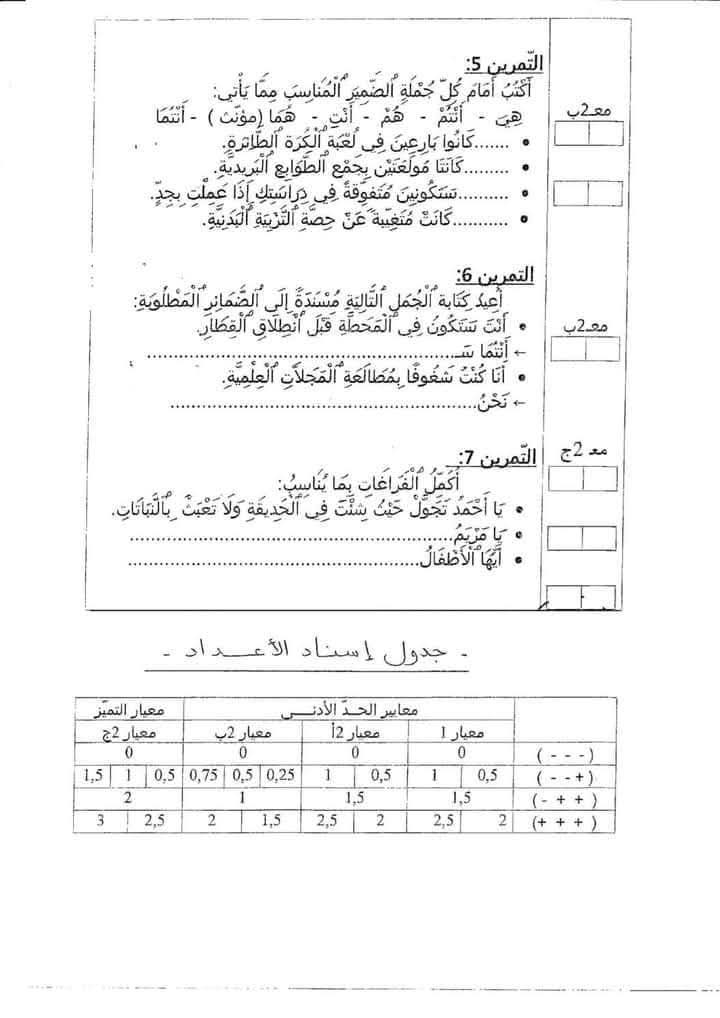 التّمرين 5:
أَكْتُبُ أَمَامَ كُلِّ جُمْلَةٍ ٱلضَّمِيرَ ٱلْمُنَاسِبَ مِمَّا يَأْتِي:
هِيَ - أَنْتُمْ - هُمْ - أَنْتِ - هُمَا (مؤنّث) - أَنْتُمَا
معـ2ب
• .......كَانُوا بَارِعِينَ فِي لُعْبَةِ ٱلْكُرَةِ ٱلطَّائِرَةِ.
• .........كَانَتَا مُولَعَتَيْنِ بِجَمْعِ ٱلطَّوَابِعِ ٱلْبَرِيدِيَّةِ.
• ..........سَتَكُونِينَ مُتَفَوِّقَةً فِي دِرَاسَتِكِ إِذَا عَمِلْتِ بِجِدٍّ.
• ...........كَانَتْ مُتَغَيِّبَةً عَنْ حِصَّةِ ٱلتَّرْبِيَةِ ٱلْبَدَنِيَّةِ.
التمرين 6:
أُعِيدُ كِتَابَةَ ٱلْجُمَلِ ٱلتَّالِيَةِ مُسْنَدَةً إِلَى ٱلضَّمَائِرِ ٱلْمَطْلُوبَةِ:
معـ2ب
• أَنْتَ سَتَكُونُ فِي ٱلْمَحَطَّةِ قَبْلَ ٱنْطِلَاقِ ٱلْقِطَارِ.
← أَنْتُمَا سَـ..........................................................
• أَنَا كُنْتُ شَغُوفًا بِمُطَالَعَةِ ٱلْمَجَلَّاتِ ٱلْعِلْمِيَّةِ.
← نَحْنُ..........................................................
معـ 2ج
التّمرين 7:
أُكَمِّلُ ٱلْفَرَاغَاتِ بِمَا يُنَاسِبُ:
• يَا أَحْمَدُ تَجَوَّلْ حَيْثُ شِئْتَ فِي ٱلْحَدِيقَةِ وَلَا تَعْبَثْ بِٱلنَّبَاتَاتِ.
• يَا مَرْيَمُ..........................................................
• أَيُّهَا ٱلْأَطْفَالُ......................................................
- جدول إسناد الأعداد -
معايير الحدّ الأدنى معيار التميّز
معيار 1 معيار 2أ معيار 2ب معيار 2ج
(- - -) 0 0 0 0
(- - +) 0,5 1 0,5 1 0,25 0,5 0,75 0,5 1 1,5
(- + +) 1,5 1,5 1 2
(+ + +) 2 2,5 2 2,5 1,5 2 2,5 3